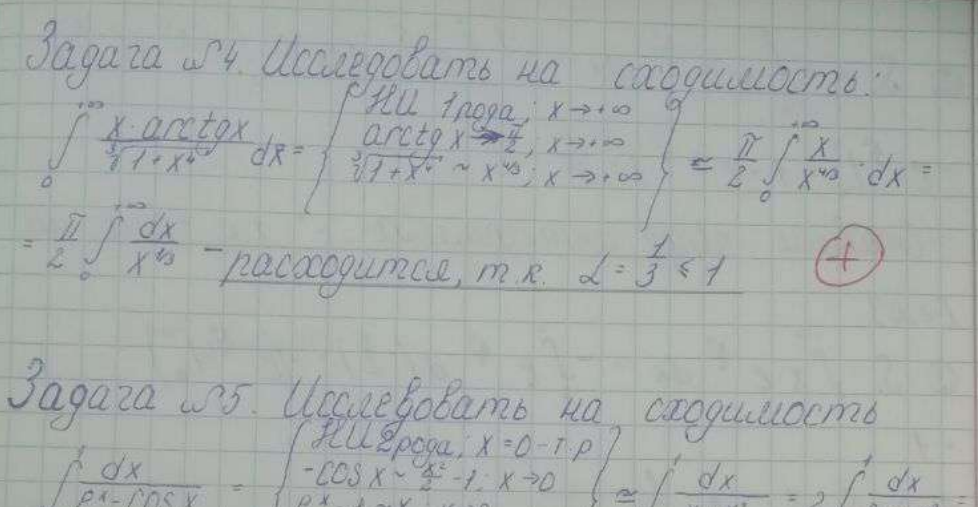 Задача №4. Исследовать на сходимость:
∫₀^{+∞} x·arctgx / ∛(1+x⁴) dx = { НИ 1 рода; x→+∞
arctg x → π/2; x→+∞
∛(1+x⁴) ~ x^{4/3}; x→+∞ } ≃ π/2 ∫₀^{+∞} x / x^{4/3} · dx =
= π/2 ∫₀^{+∞} dx / x^{1/3} – расходится, т.к. α = 1/3 ≤ 1 +
Задача №5. Исследовать на сходимость
∫ ¹ dx / eˣ–cos x = { НИ 2 рода; x=0 – т.р
-cos x ~ x²/2 -1; x→0 } ≃ ∫ ¹ dx = 2 ∫ ¹ dx =